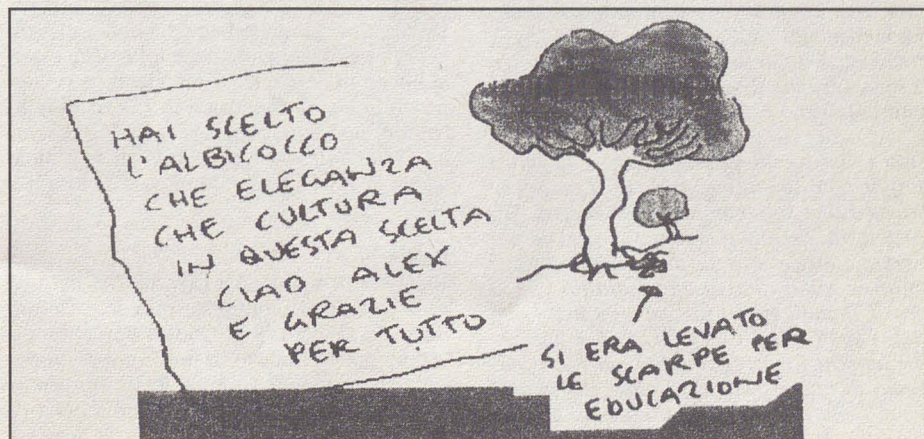 HAI SCELTO
L'ALBICOCCO
CHE ELEGANZA
CHE CULTURA
IN QUESTA SCELTA
CIAO ALEX
E GRAZIE
PER TUTTO
SI ERA LEVATO
LE SCARPE PER
EDUCAZIONE